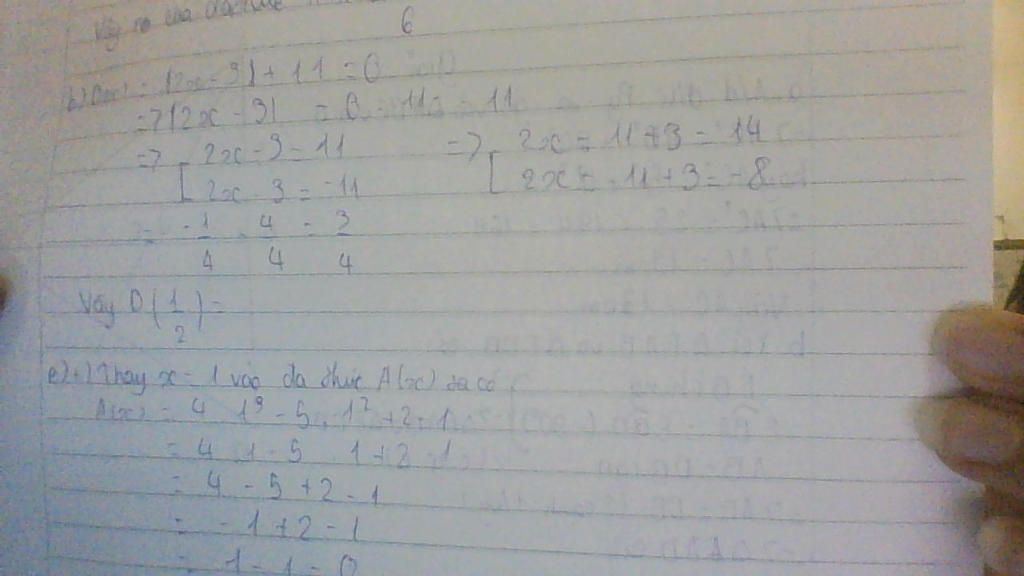 Vậy no của đa thức
6
b) = |2x - 3| + 11 = 0
=> |2x - 3| = 0 - 11 = 11
=> [ 2x - 3 = 11 => [ 2x = 11 + 3 = 14
2x - 3 = -11 2x = -11 + 3 = -8
= -1/4 - 4/4 = 3/4
Vậy D(1/2) =
e) +) Thay x = 1 vào đa thức A(x) ta có
A(x) = 4 . 1³ - 5 . 1² + 2 . 1
= 4 . 1 - 5 . 1 + 2 . 1
= 4 - 5 + 2 - 1
= -1 + 2 - 1
= 1 - 1 = 0